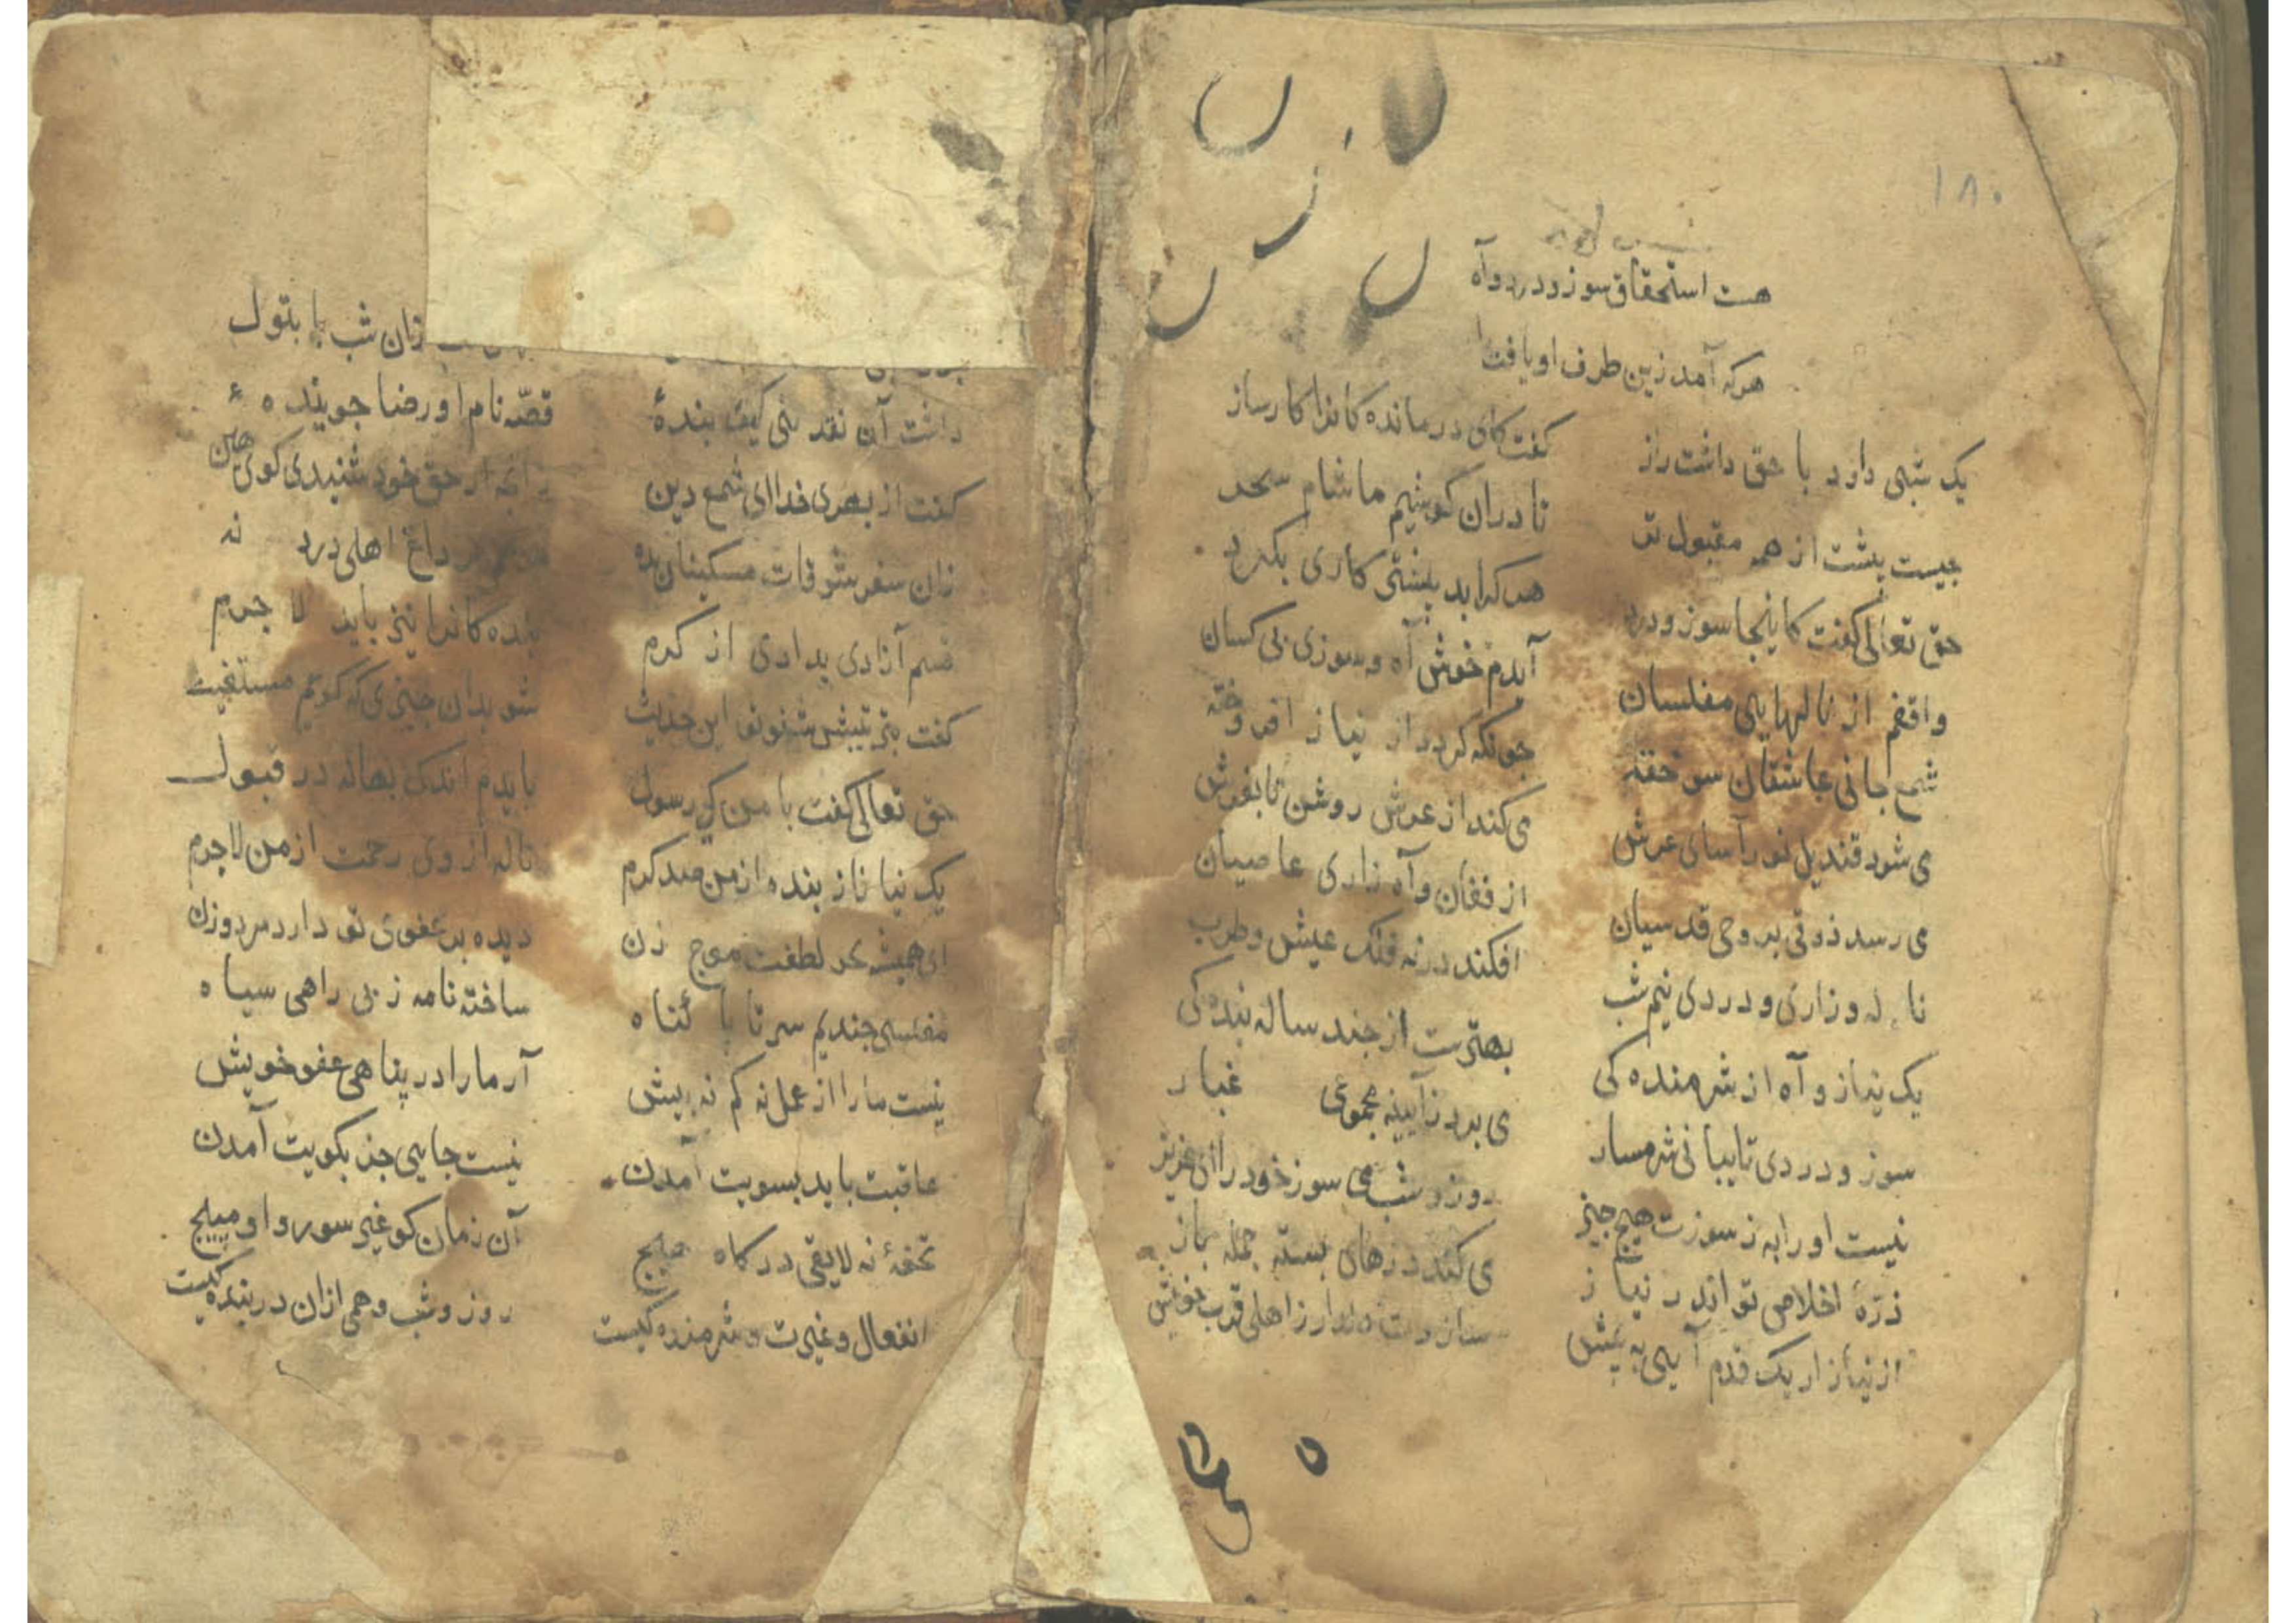 ۱۸۰
هست استحقاق سوز و درد و آه
هرکه آمد زین طرف او یافت
یک شبی داود با حق داشت راز
گفت کای درمانده کانرا کارساز
چیست پیشت از همه مقبول تر
تا دران کوشیم ما شام سحر
حق تعالی گفت کاینجا سوز و درد
هر کرا بد پیشتی کاری بکرد
واقفم از نالهایی مفلسان
آیدم خوش آه و سوزی بی کسان
شمع جانی عاشقان سوخته
چونکه کردد از نیاز افروخته
می شود قندیل نور آسای عرش
می کند از عرش روشن تا بفرش
می رسد ذوقی بروحی قدسیان
از فغان و آه زاری عاصیان
ناله و زاری و دردی نیم شب
افکند در نه فلک عیش و طرب
یک نیاز و آه از شرمنده کی
بهترست از چند ساله بنده کی
سوز و دردی تایبانی شرمسار
می برد زآیینه مجموعی غبار
نیست او را به ز سوزت هیچ چیز
روز و شب می سوز خود را ای عزیز
ذرّهٔ اخلاص تو اندر نیاز
می کند درهای بسته جمله باز
از نیاز ار یک قدم آیی به پیش
سازدت زاهلی قرب خویش
زان شب با بتول
داشت آن نقد نبی کیف بندهٔ
قصّه نام او رضا جویندهٔ
گفت از بهری خدا ای شمع دین
حق خود شنیدی کوی هین
زان سفر مسکینان بده
داغ اهلی درد نه
قسم آزادی بدادی از کرم
بنده کانرا نیز باید لا جرم
گفت بنشین شنو تو این حدیث
شو بدان چیزی که کویم مستغیث
حق تعالی گفت با من کی رسول
بایدم اندک بهانه در قبول
یک نیا ناز بنده از من صد کرم
ناله از وی رحمت از من لاجرم
ای همیشه بحر لطفت موج زن
دیده بر عفوی تو دارد مرد و زن
مفلسی چندیم سر تا پا کناه
ساخته نامه ز بی راهی سیاه
نیست ما را از عمل نه کم نه بیش
آر ما را در پناهی عفو خویش
عاقبت باید بسویت آمدن
نیست جایی جز بکویت آمدن
تحفهٔ نه لایقی درکاه هیچ
آن زمان کو غیر سور و او مپیچ
انفعال و غیرت و شرمنده کیست
روز و شب و همی ازان در بنده کیست